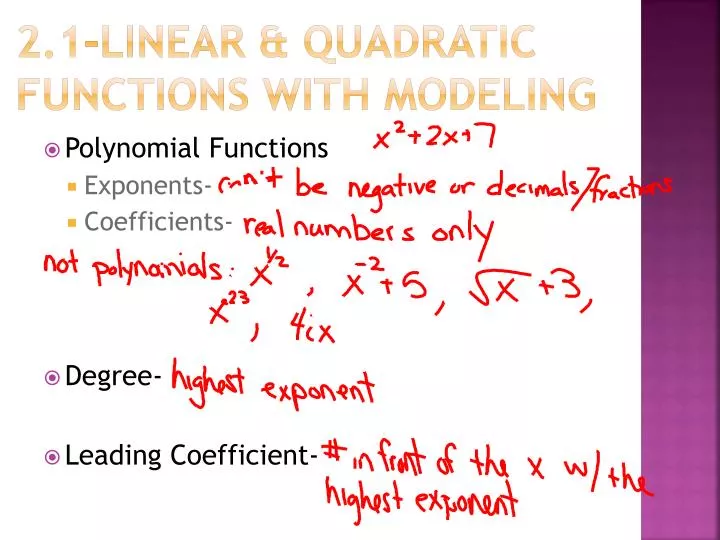 2.1-LINEAR & QUADRATIC
FUNCTIONS WITH MODELING
Polynomial Functions x²+2x+7
Exponents- can't be negative or decimals/fractions
Coefficients- real numbers only
not polynomials: x^1/2, x^-2+5, √x+3,
x^.23, 4ix
Degree- highest exponent
Leading Coefficient- # in front of the x w/the
highest exponent